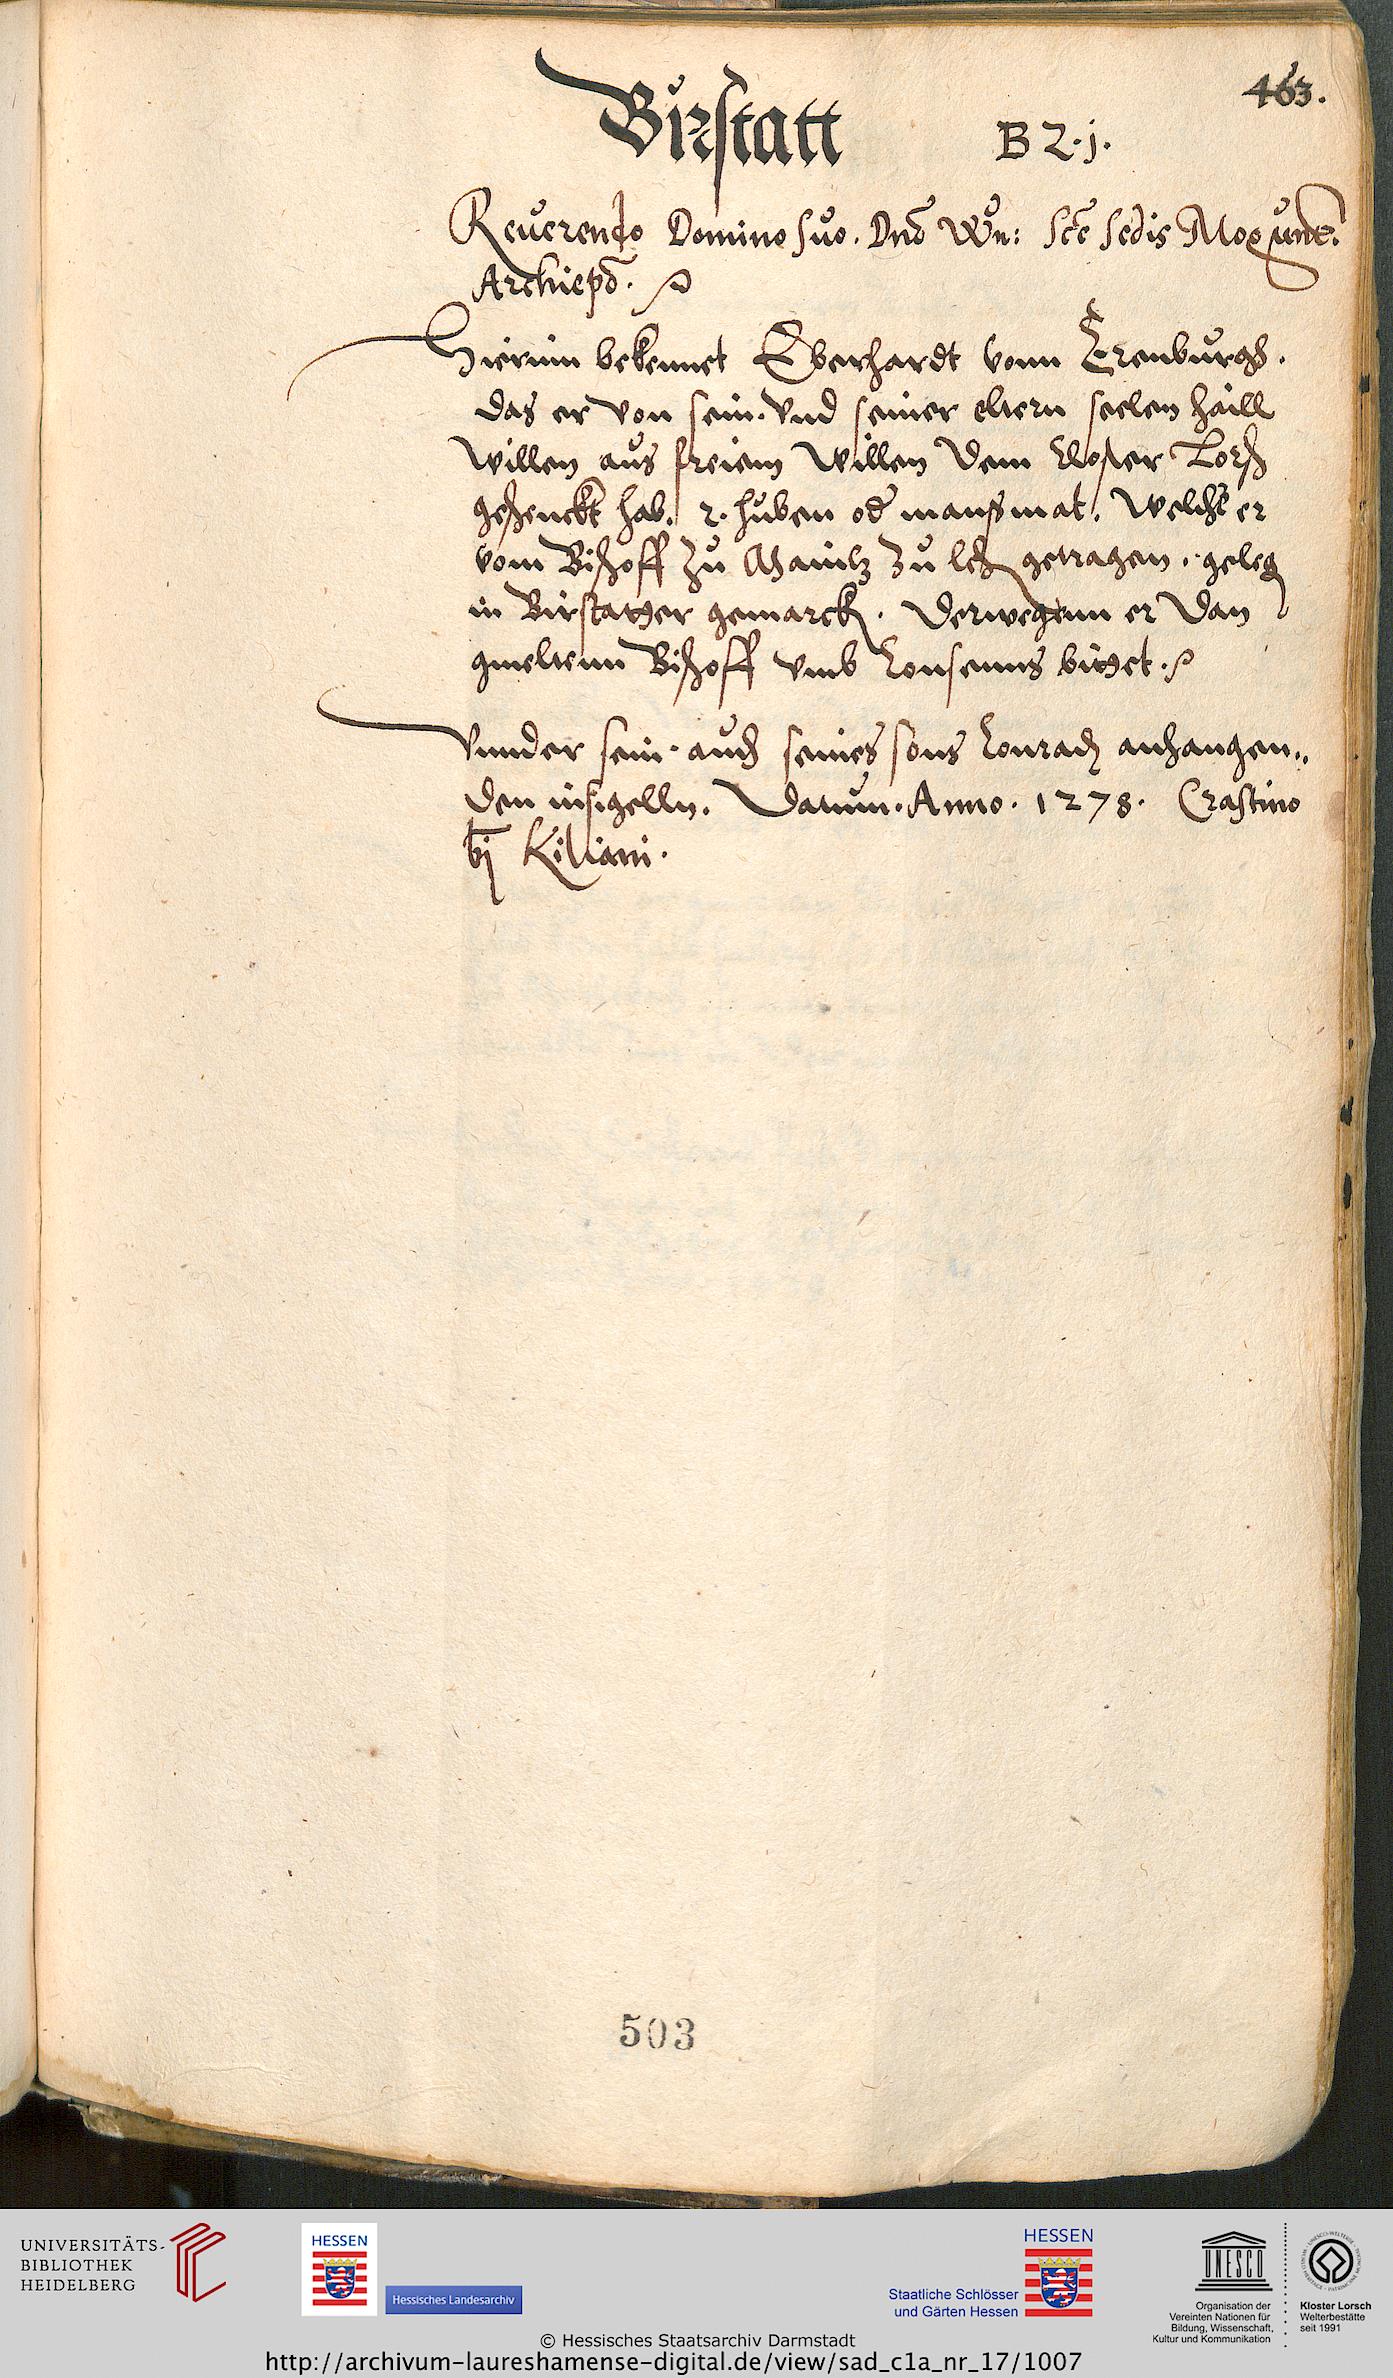 463.
Birstatt B 2. j.
Reuerendo Domino suo. Dno Wn: Scē sedis Moguntē.
Archiepō.
Hierinn bekennet Eberhardt vonn Erenburgh.
das er von sein. vnd seiner eltern seelen haill
willen aus freiem willen dem Closter Lorsch
geschenckt hab. 2. huben od mansmat. welche er
vom Bischoff zu Maintz zu lehen getragen. geleg
in Birstatter gemarck. derwegenn er dan
gmeltenn Bischoff vmb Consenns bittet.
Vnnder sein. auch seines sons Conradj anhangen„
den insigelln. Datum. Anno. 1278. Crastino
bj Kiliani.
503
UNIVERSITÄTS-
BIBLIOTHEK
HEIDELBERG
HESSEN
Hessisches Landesarchiv
HESSEN
Staatliche Schlösser
und Gärten Hessen
UNESCO
Organisation der
Vereinten Nationen für
Bildung, Wissenschaft,
Kultur und Kommunikation
Kloster Lorsch
Welterbestätte
seit 1991
© Hessisches Staatsarchiv Darmstadt
http://archivum-laureshamense-digital.de/view/sad_c1a_nr_17/1007